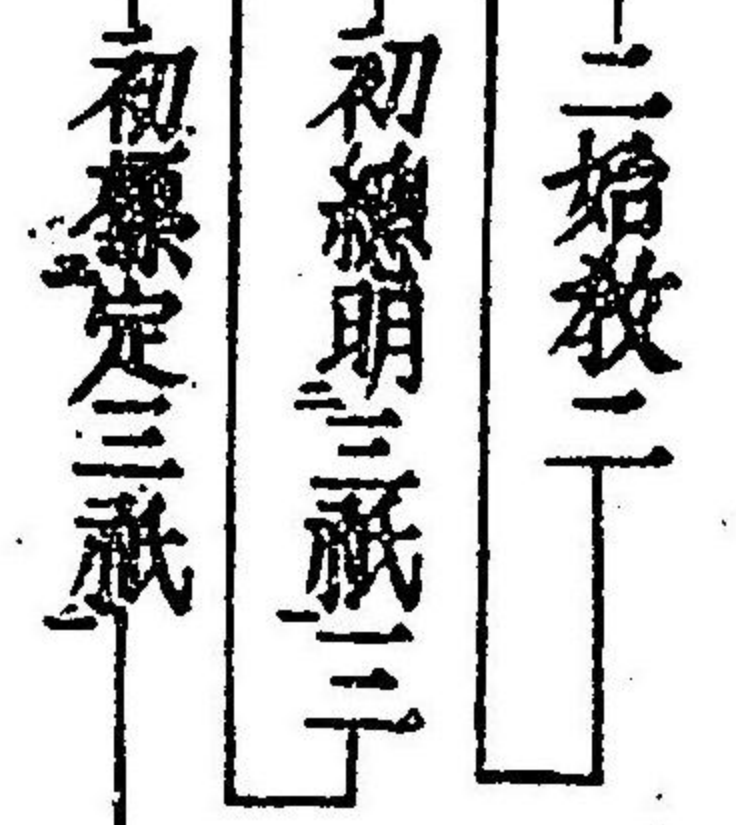 二始教二
初總明三祇三
初標定三祇